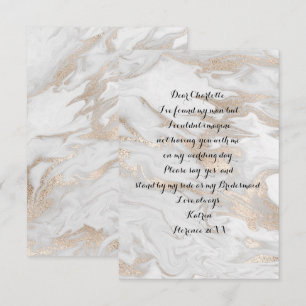 Dear Charlotte
I've found my man but
I couldn't imagine
not having you with me
on my wedding day
Please say yes and
stand by my side as my Bridesmaid
Love always
Katrin
Florence 20XX